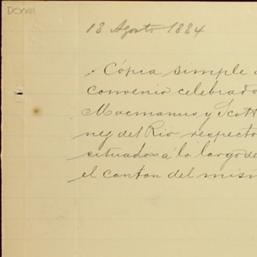 DONAI
18 Agosto 1884
Cópia simple d
convenio celebrado
Macmanus y Scott
ney del Rio respecto
situados á lo largo de
el canton del mism